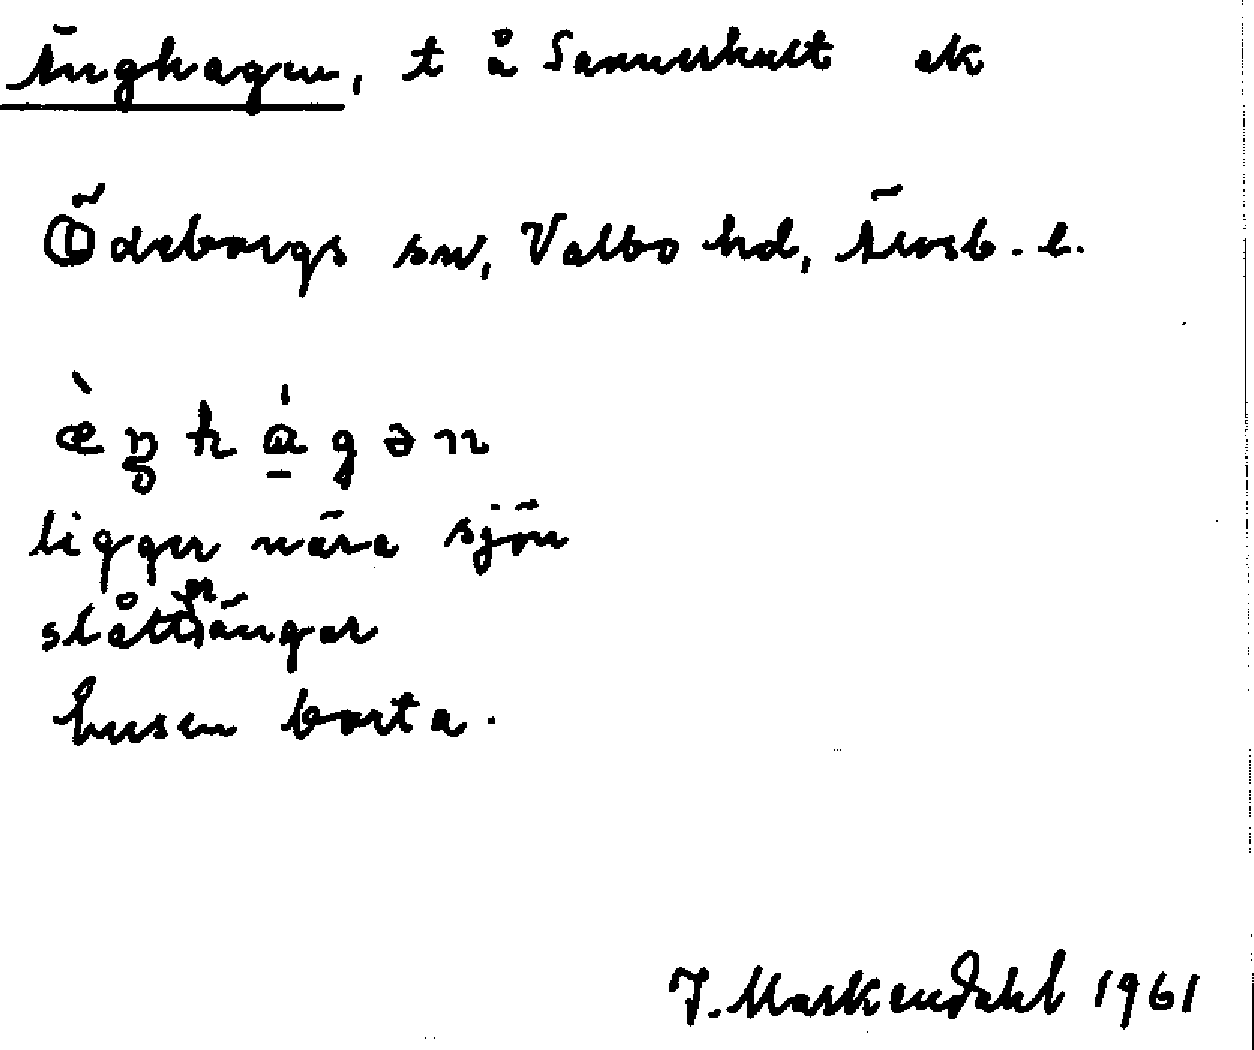 Änghagen, t å Sannerhult ek
Ödeborgs sn, Valbo hd, Älvsb. l.
æ̀ŋhá̱gən
ligger nära sjön
slåtteränger
husen borta.
J. Markendahl 1961